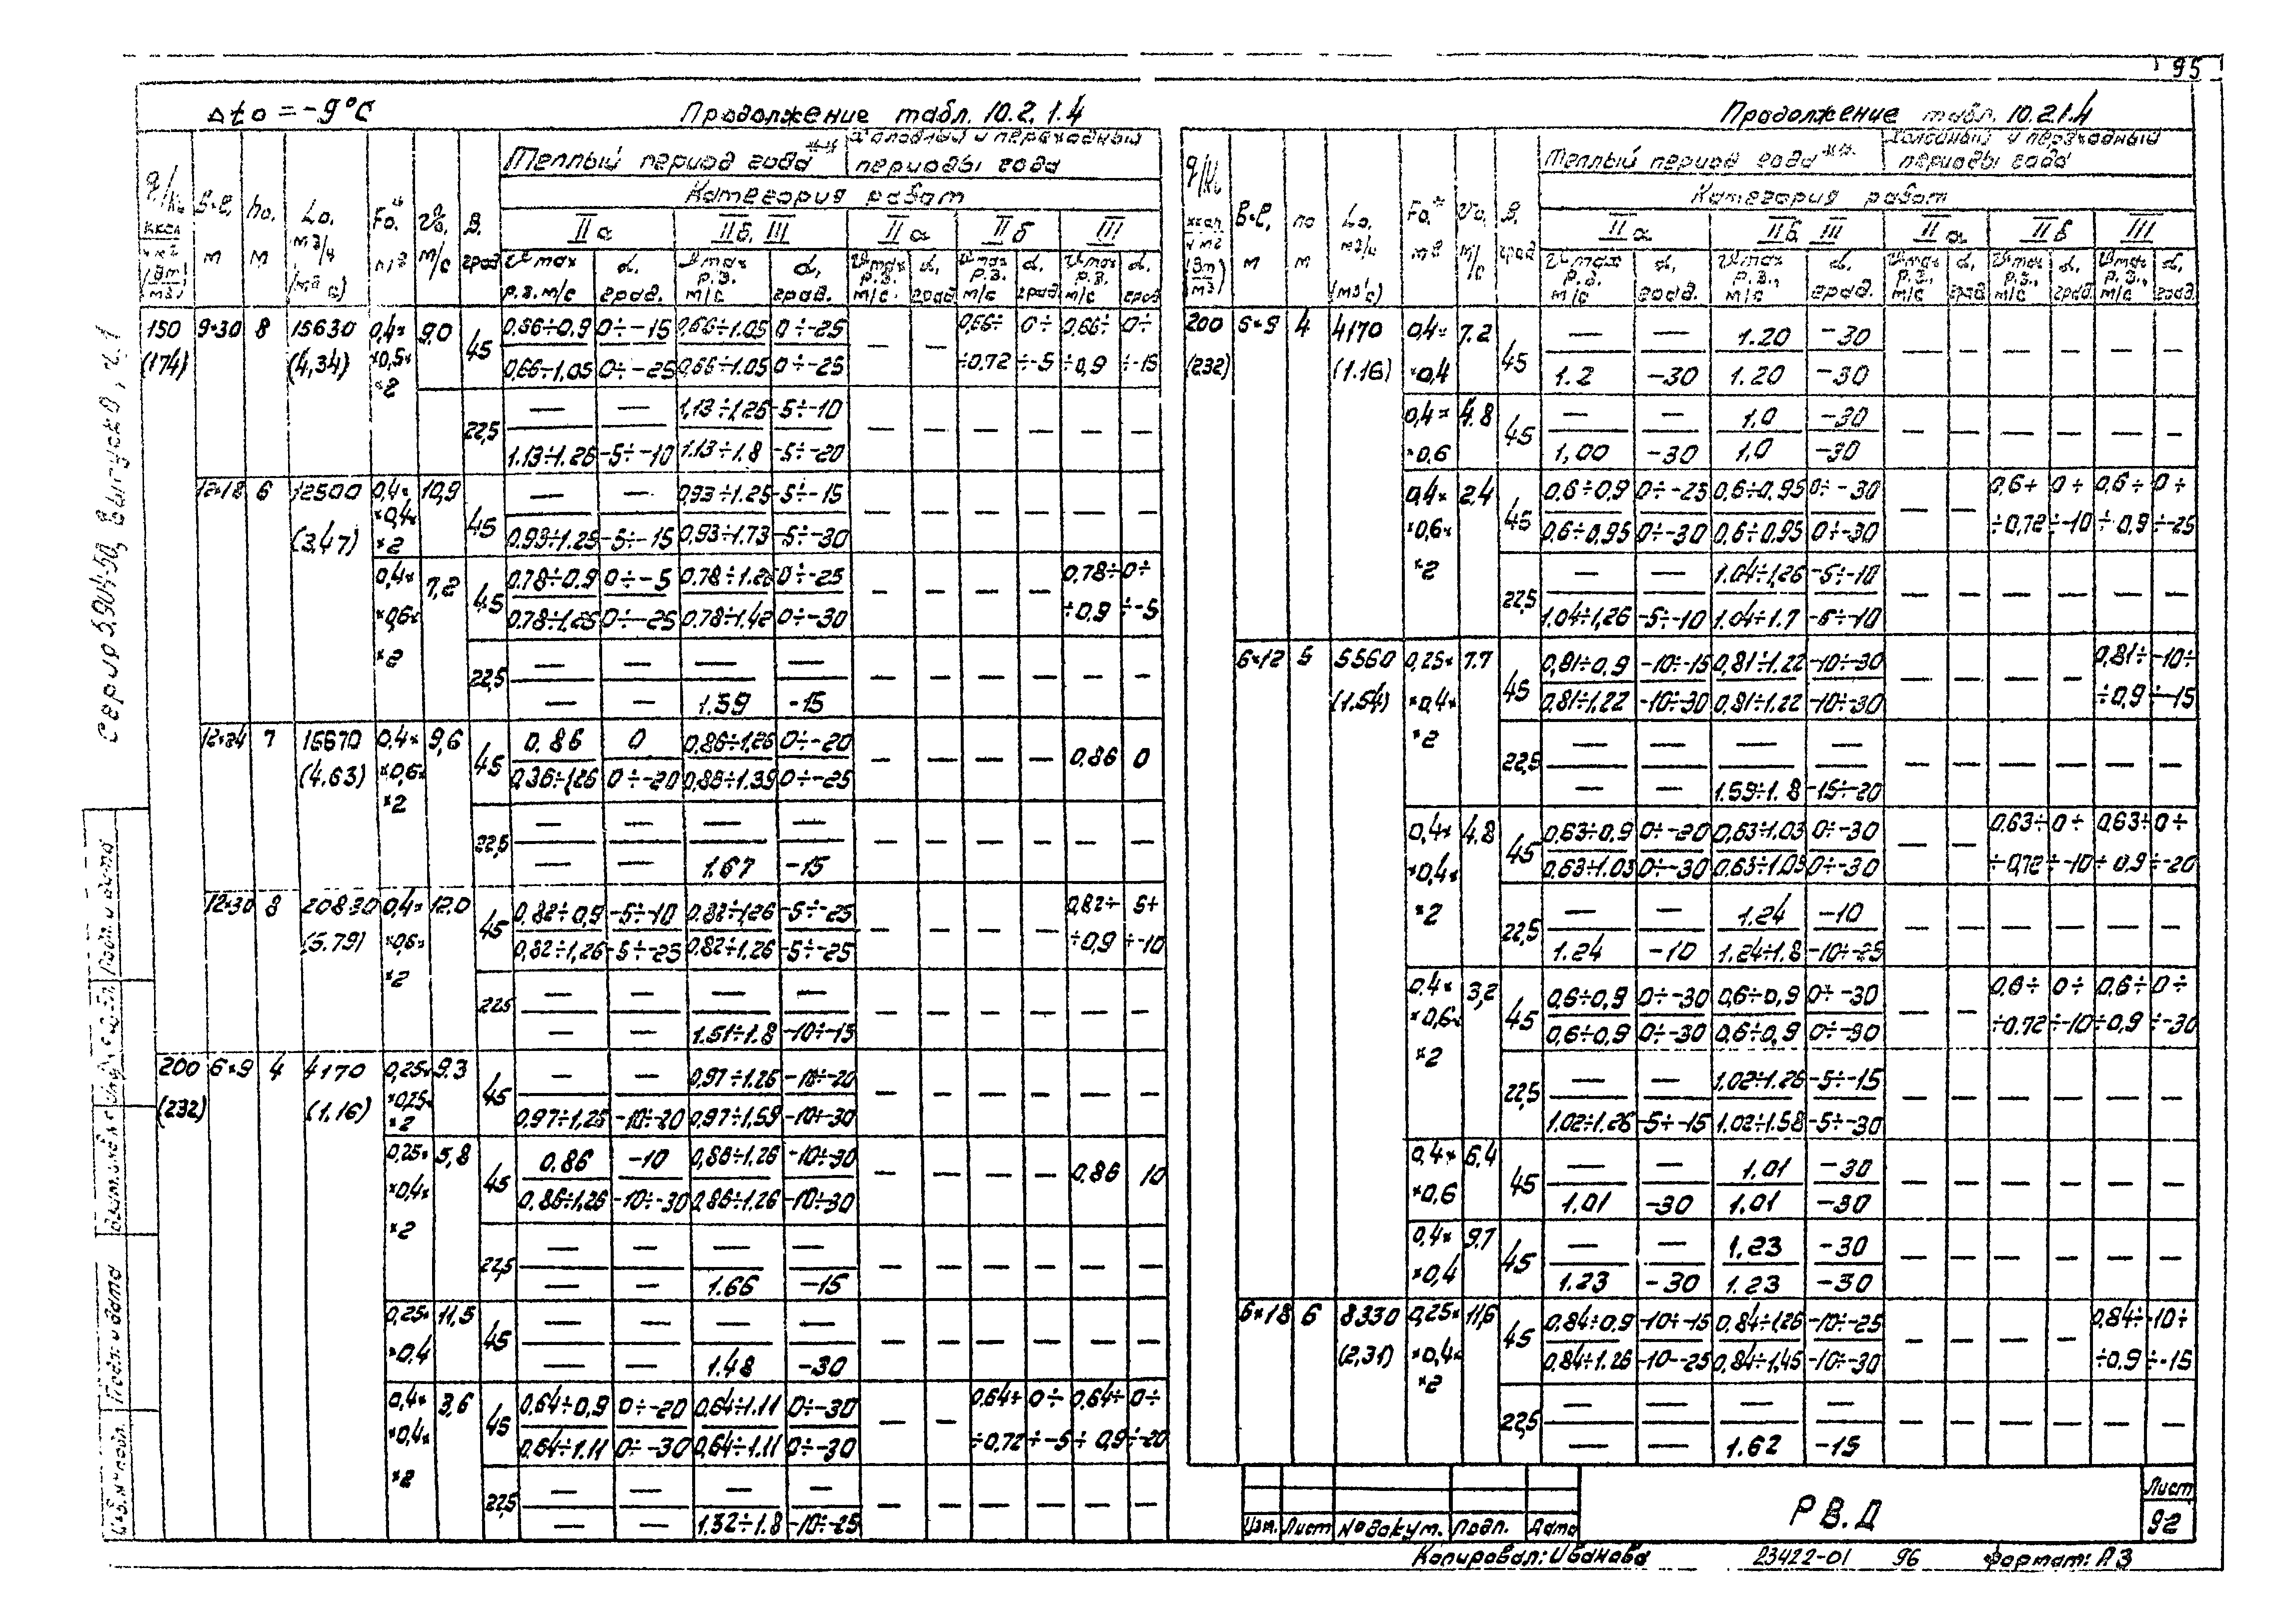 95
Δto = -9°C
Продолжение табл. 10.2.1.4
q/кк ккал/ч м² (Вт/м²)
В×ℓ, м
ho, м
Lo, м³/ч (м³/с)
Fo,* м²
Vo, м/с
β, град
Теплый период года**
Холодный и переходный периоды года
Категория работ
IIа
IIб, III
IIа
IIб
III
Vmax р.з. м/с
α, град.
Vmax р.з. м/с
α, град.
Vmax р.з. м/с.
α, град
Vmax р.з. м/с
α, град
Vmax р.з. м/с
α, град
150 (174) 9×30 8 15630 (4,34) 0,4× ×0,5× ×2 9.0 45
0,66÷0.9 0÷-15 0,66÷1.05 0÷-25 — — 0,66÷ ÷0.72 0÷ ÷-5 0,66÷ ÷0,9 0÷ ÷-15
0,66÷1,05 0÷-25 0,66÷1.05 0÷-25
22,5 — — 1,13÷1,26 -5÷-10 — — — — — —
1.13÷1.26 -5÷-10 1.13÷1.8 -5÷-20
12×18 6 12500 (3,47) 0,4× ×0,4× ×2 10,9 45
— — 0,93÷1.25 -5÷-15 — — — — — —
0.93÷1.25 -5÷-15 0,93÷1.73 -5÷-30
0,4× ×0,6× ×2 7,2 45
0.78÷0.9 0÷-5 0.78÷1.26 0÷-25 — — — — 0,78÷ ÷0.9 0÷ ÷-5
0.78÷1,26 0÷-25 0.78÷1,42 0÷-30
22,5 — — — — — — — — — —
— — 1.59 -15
12×24 7 16670 (4.63) 0,4× ×0,6× ×2 9,6 45
0.86 0 0,86÷1,26 0÷-20 — — — — 0,86 0
0,86÷1,26 0÷-20 0,86÷1.39 0÷-25
22,5 — — — — — — — — — —
— — 1.67 -15
12×30 8 20830 (5.79) 0,4× ×0,6× ×2 12.0 45
0,82÷0,9 -5÷-10 0,82÷1,26 -5÷-25 — — — — 0,82÷ ÷0,9 5÷ ÷-10
0,82÷1,26 -5÷-25 0.82÷1.26 -5÷-25
22.5 — — — — — — — — — —
— — 1.51÷1.8 -10÷-15
200 (232) 6×9 4 4170 (1.16) 0,25× ×0,25× ×2 9.3 45
— — 0,97÷1.26 -10÷-20 — — — — — —
0,97÷1,26 -10÷-20 0,97÷1,59 -10÷-30
0,25× ×0,4× ×2 5,8 45
0.86 -10 0,86÷1.26 -10÷-30 — — — — 0,86 10
0.86÷1,26 -10÷-30 0,86÷1,26 -10÷-30
22,5 — — — — — — — — — —
— — 1.66 -15
0,25× ×0,4 11,5 45
— — — — — — — — — —
— — 1.48 -30
0,4× ×0,4× ×2 3,6 45
0,64÷0,9 0÷-20 0,64÷1.11 0÷-30 — — 0,64÷ ÷0,72 0÷ ÷-5 0,64÷ ÷0,9 0÷ ÷-20
0.64÷1.11 0÷-30 0,64÷1.11 0÷-30
22,5 — — — — — — — — — —
— — 1.32÷1.8 -10÷-25
Продолжение табл. 10.2.1.4
q/кк ккал/ч м² (Вт/м²)
В×ℓ, м
по м
Lo, м³/ч (м³/с)
Fo,* м²
Vo, м/с
β, град
Теплый период года**
Холодный и переходный периоды года
Категория работ
IIа
IIб, III
IIа
IIб
III
Vmax р.з. м/с
α, град.
Vmax р.з., м/с
α, град.
Vmax р.з. м/с
α, град
Vmax р.з., м/с
α, град
Vmax р.з., м/с
α, град
200 (232) 6×9 4 4170 (1.16) 0,4× ×0,4 7.2 45
— — 1.20 -30 — — — — — —
1.2 -30 1.20 -30
0,4× ×0,6 4.8 45
— — 1.0 -30 — — — — — —
1,00 -30 1.0 -30
0,4× ×0,6× ×2 2.4 45
0.6÷0.9 0÷-25 0,6÷0,95 0÷-30 — — 0,6÷ ÷0,72 0÷ ÷-10 0,6÷ ÷0,9 0÷ ÷-25
0,6÷0,95 0÷-30 0,6÷0,95 0÷-30
22,5 — — 1.04÷1,26 -5÷-10 — — — — — —
1.04÷1,26 -5÷-10 1.04÷1.7 -5÷-10
6×12 5 5560 (1.54) 0,25× ×0,4× ×2 7.7 45
0,81÷0,9 -10÷-15 0,81÷1.22 -10÷-30 — — — — 0,81÷ ÷0,9 -10÷ ÷-15
0.81÷1,22 -10÷-30 0,81÷1.22 -10÷-30
22,5 — — — — — — — — — —
— — 1.59÷1.8 -15÷-20
0,4× ×0,4× ×2 4.8 45
0,63÷0,9 0÷-20 0,63÷1.03 0÷-30 — — 0,63÷ ÷0,72 0÷ ÷-10 0,63÷ ÷0,9 0÷ ÷-20
0.63÷1.03 0÷-30 0,63÷1.03 0÷-30
22,5 — — 1.24 -10 — — — — — —
1.24 -10 1.24÷1.8 -10÷-25
0,4× ×0,6× ×2 3,2 45
0,6÷0,9 0÷-30 0,6÷0,9 0÷-30 — — 0,6÷ ÷0.72 0÷ ÷-10 0,6÷ ÷0,9 0÷ ÷-30
0,6÷0,9 0÷-30 0,6÷0,9 0÷-30
22,5 — — 1.02÷1.26 -5÷-15 — — — — — —
1.02÷1.26 -5÷-15 1.02÷1.58 -5÷-30
0,4× ×0,6 6,4 45
— — 1,01 -30 — — — — — —
1.01 -30 1.01 -30
0,4× ×0,4 9.7 45
— — 1.23 -30 — — — — — —
1.23 -30 1.23 -30
6×18 6 8330 (2,31) 0,25× ×0,4× ×2 11,6 45
0,84÷0,9 -10÷-15 0,84÷1,26 -10÷-25 — — — — 0,84÷ ÷0.9 -10÷ ÷-15
0,84÷1.26 -10-25 0,84÷1,45 -10÷-30
22,5 — — — — — — — — — —
— — 1.62 -15
Серия 5.904-50, Выпуск 0, ч.1
Инв.№ подл. Подп. и дата
Подп. и дата
Изм. Лист № докум. Подп. Дата
РВ.Д
Лист
92
Копировал: Иванова
23422-01 96
Формат: А3